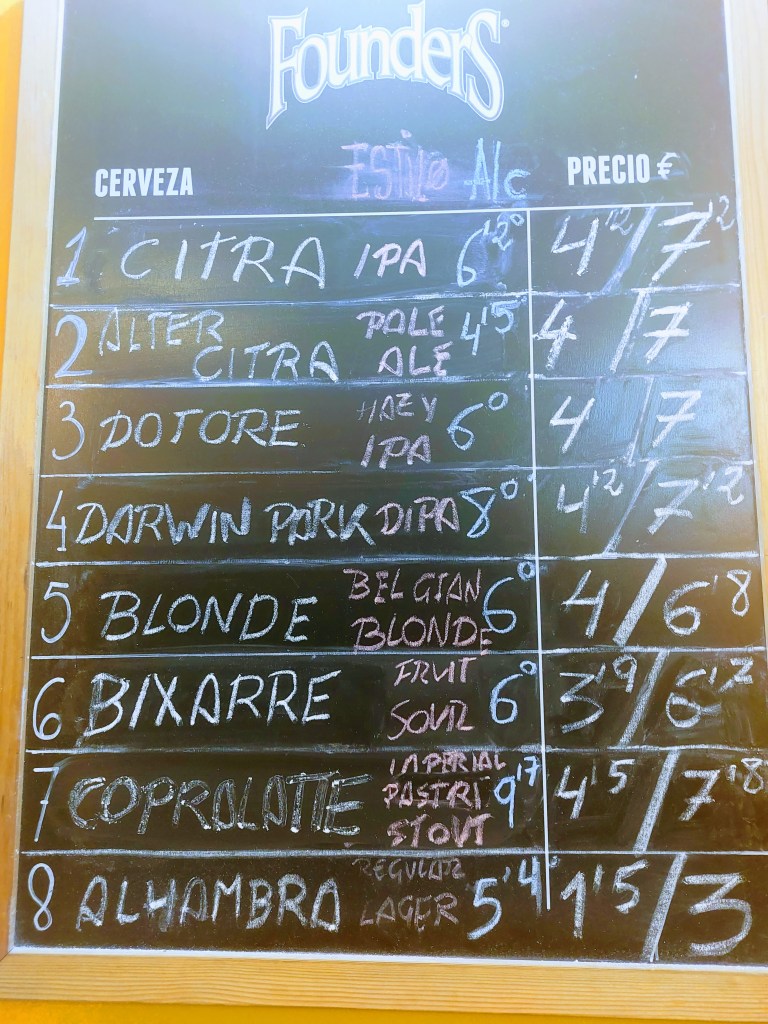 FounderS
CERVEZA ESTILO Alc PRECIO €
1 CITRA IPA 6'2° 4'2/7'2
2 ALTER CITRA PALE ALE 4'5 4/7
3 DOTORE HAZY IPA 6° 4/7
4 DARWIN PARK DIPA 8° 4'2/7'2
5 BLONDE BELGIAN BLONDE 6° 4/6'8
6 BIXARRE FRUIT SOUR 6° 3'9/6'7
7 COPRALATTE IMPERIAL PASTRI STOUT 9'7 4'5/7'8
8 ALHAMBRA REGULAR LAGER 5'4 1'5/3